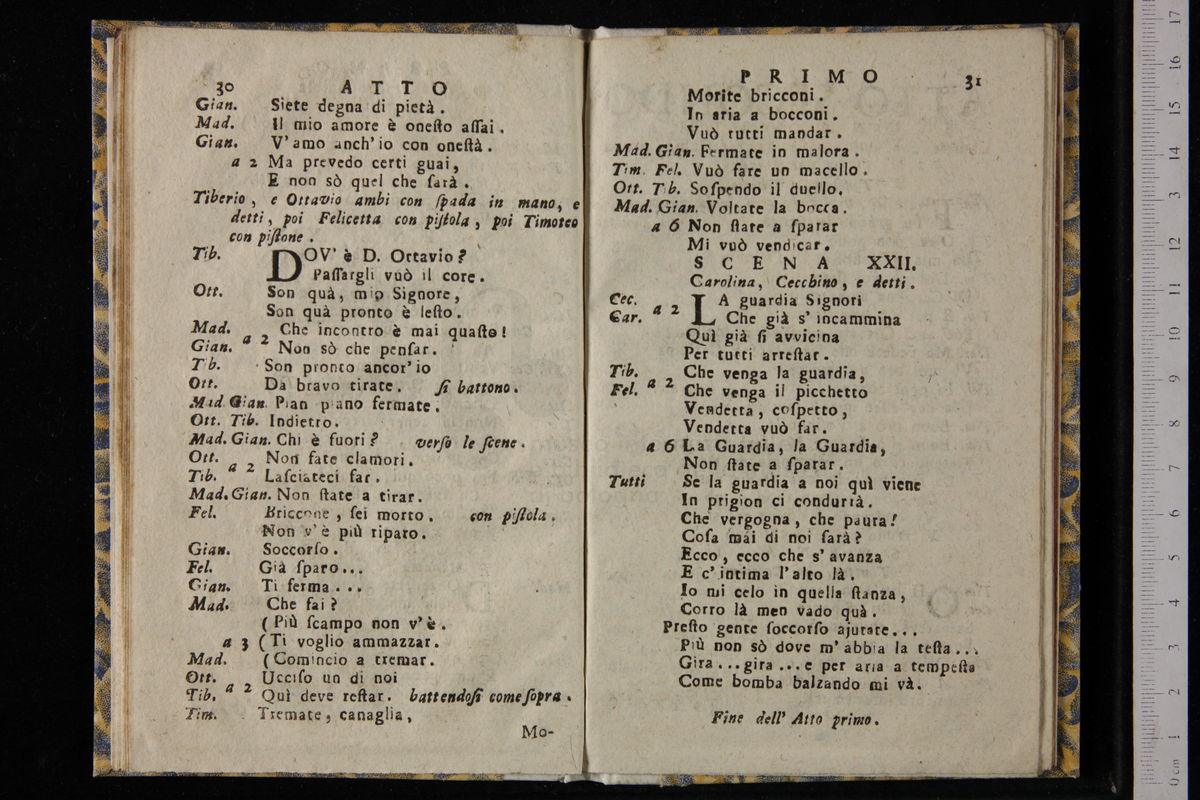 30 ATTO
Gian. Siete degna di pietà.
Mad. Il mio amore è oneſto aſſai.
Gian. V'amo anch'io con oneſtà.
a 2 Ma prevedo certi guai,
E non sò quel che ſarà.
Tiberio, e Ottavio ambi con ſpada in mano, e
detti, poi Felicetta con piſtola, poi Timoteo
con piſtone.
Tib. DOV'è D. Ottavio?
Paſſargli vuò il core.
Ott. Son quà, mio Signore,
Son quà pronto è leſto.
Mad. Che incontro è mai quaſto!
Gian. a 2 Non sò che penſar.
Tib. Son pronto ancor'io
Ott. Da bravo tirate. ſi battono.
Mad. Gian. Pian piano fermate.
Ott. Tib. Indietro.
Mad. Gian. Chi è fuori? verſo le ſcene.
Ott. a 2 Non fate clamori.
Tib. Laſciateci far.
Mad. Gian. Non ſtate a tirar.
Fel. Briccone, ſei morto. con piſtola.
Non v'è più riparo.
Gian. Soccorſo.
Fel. Già ſparo...
Gian. Ti ferma...
Mad. Che fai?
(Più ſcampo non v'è.
a 3 (Ti voglio ammazzar.
Mad. (Comincio a tremar.
Ott. Ucciſo un di noi
Tib. a 2 Quì deve reſtar. battendoſi come ſopra.
Tim. Tremate, canaglia,
Mo-
PRIMO 31
Morite bricconi.
In aria a bocconi.
Vuò tutti mandar.
Mad. Gian. Fermate in malora.
Tim. Fel. Vuò fare un macello.
Ott. Tib. Soſpendo il duello.
Mad. Gian. Voltate la bocca.
a 6 Non ſtate a ſparar
Mi vuò vendicar.
SCENA XXII.
Carolina, Cecchino, e detti.
Cec. LA guardia Signori
Car. a 2 Che già s'incammina
Quì già ſi avvicina
Per tutti arreſtar.
Tib. Che venga la guardia,
Fel. a 2 Che venga il picchetto
Vendetta, coſpetto,
Vendetta vuò far.
a 6 La Guardia, la Guardia,
Non ſtate a ſparar.
Tutti Se la guardia a noi quì viene
In prigion ci condurrà.
Che vergogna, che paura!
Coſa mai di noi ſarà?
Ecco, ecco che s'avanza
E c'intima l'alto là.
Io mi celo in quella ſtanza,
Corro là men vado quà.
Preſto gente ſoccorſo ajutate...
Più non sò dove m'abbia la teſta...
Gira...gira...e per aria a tempeſta
Come bomba balzando mi và.
Fine dell'Atto primo.